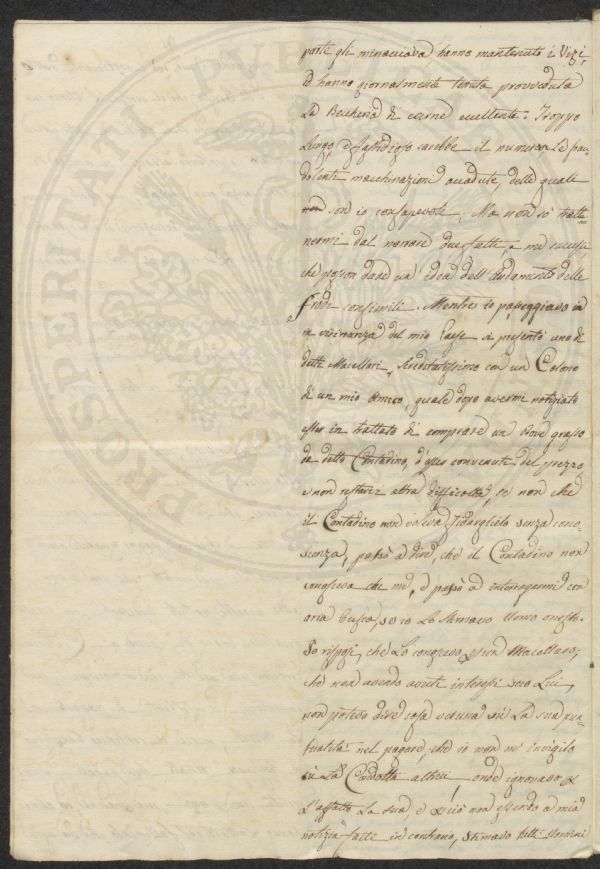 PROSPERITATI PVB
parte gli minacciava hanno mantenuto i Vizi,
ed hanno giornalmente tenuta provveduta
La Beccheria di carne eccellente. Troppo
Lungo, e fastidioso sarebbe il numerare Le frau-
dolenti macchinazioni accadute, delle quali
son io consapevole. Ma non so tratte-
nermi dal narrare due fatti, a me successi
che posson dare un' idea dell' Andamento delle
frodi consimili. Mentre io passeggiavo
in vicinanza del mio Paese si presentò uno di
detti Macellari, screditatissimo con un Colono
di un mio Amico, quale dopo avermi notiziato
esser in trattato di comprare un Bove grasso
da detto Contadino, d'esser convenuti del prezzo,
e non restarvi altra difficoltà, se non che
il Contadino non voleva fidarglielo senza cono-
scenza, passò a dire, che il Contadino non
conosceva che me, e passò a interrogarmi con
aria brusca, se io Lo stimavo Uomo onesto.
Io risposi, che Lo conoscevo per un Macellaro,
che non avendo avuti interessi seco Lui,
non potevo dire cosa veruna sù La sua pun-
tualità nel pagare, che io non m' invigilo
sù La Condotta altrui, onde ignoravo
L'affatto La sua, e che non essendo a mia
notizia fatti in contrario, stimavo tutti Uomini